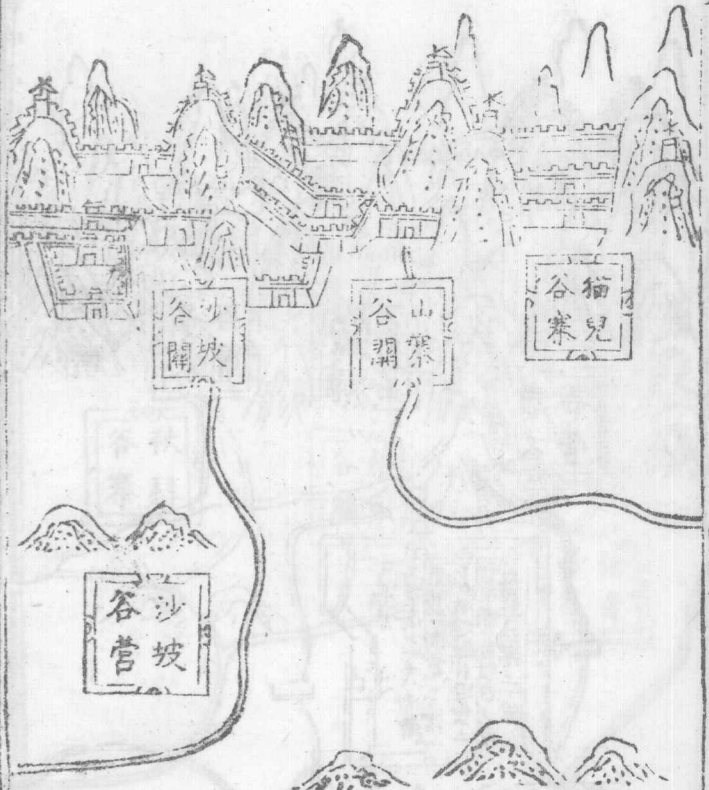 猫兒
谷寨
山寨
谷關
沙坡
谷關
沙坡
谷营